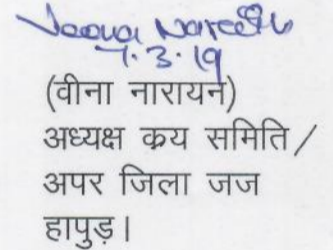 Veena Narayan
7.3.19
(वीना नारायन)
अध्यक्ष क्रय समिति /
अपर जिला जज
हापुड़।